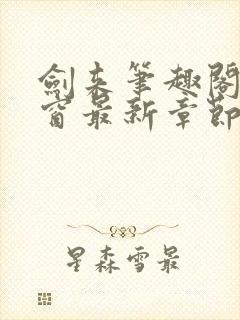 劍来筆趣閣
窗最新章節
星森雪最